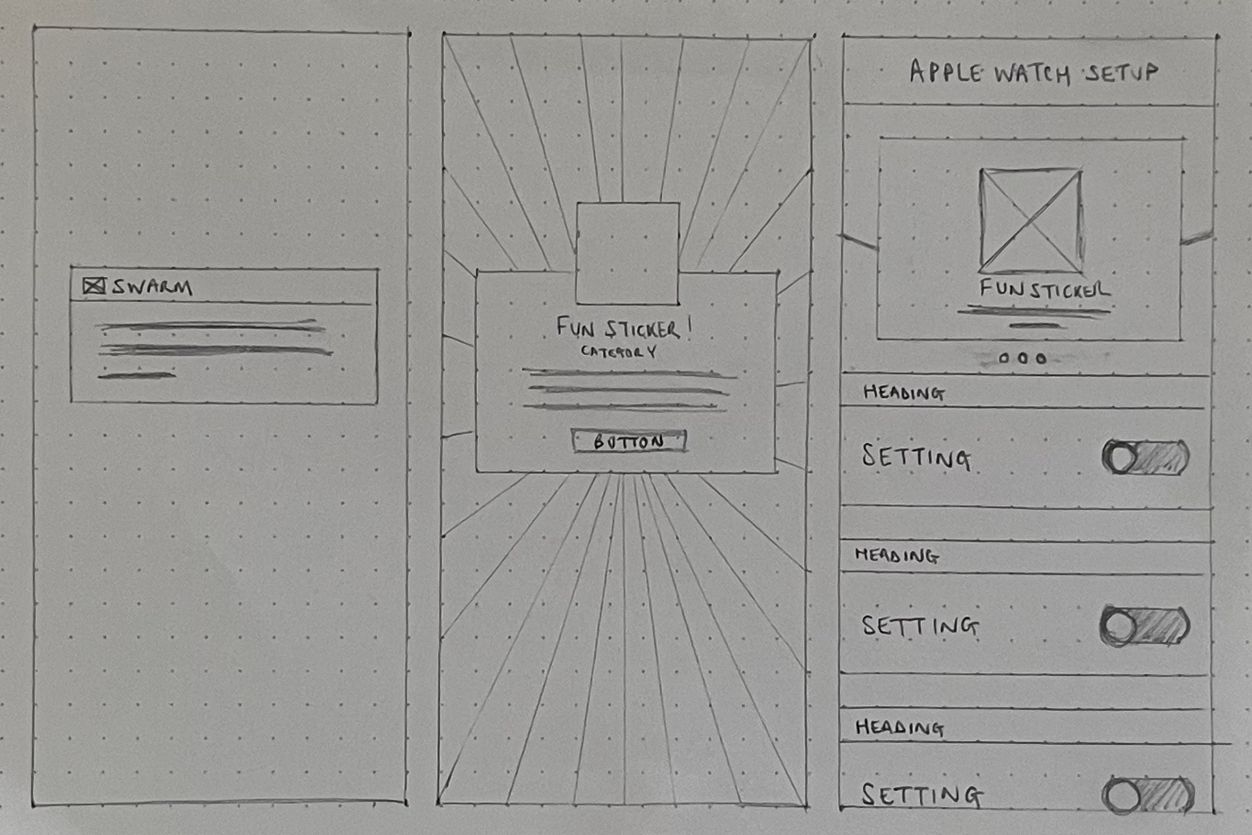 SWARM
FUN STICKER!
CATEGORY
BUTTON
APPLE WATCH SETUP
FUN STICKER
HEADING
SETTING
HEADING
SETTING
HEADING
SETTING